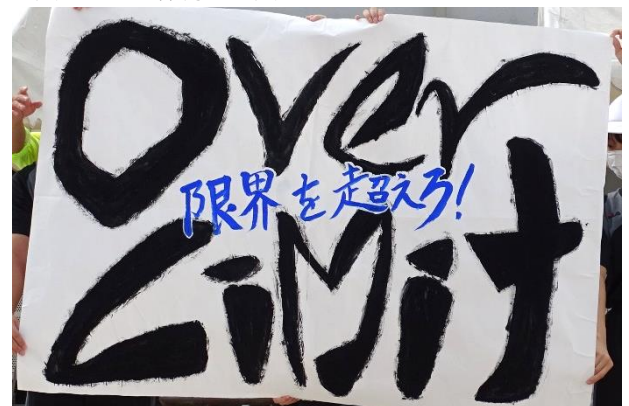 over
限界を超えろ!
LiMit